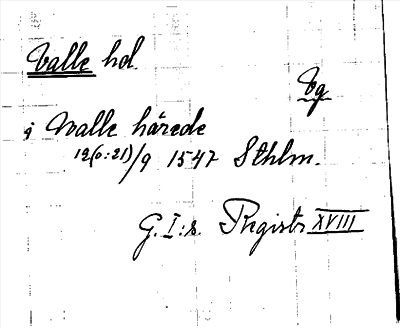 Valle hd.
Vg
i Walle härede
12(o:21)/9 1547 Sthlm.
G. I:s. Registr XVIII